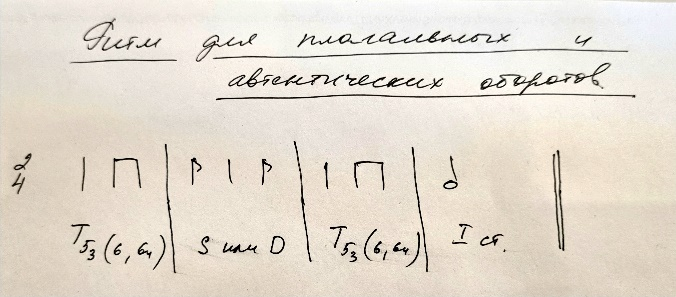 Ритм для плагальных и
автентических оборотов
2
4
T53 (6, 64) S или D T53 (6, 64) I ст.